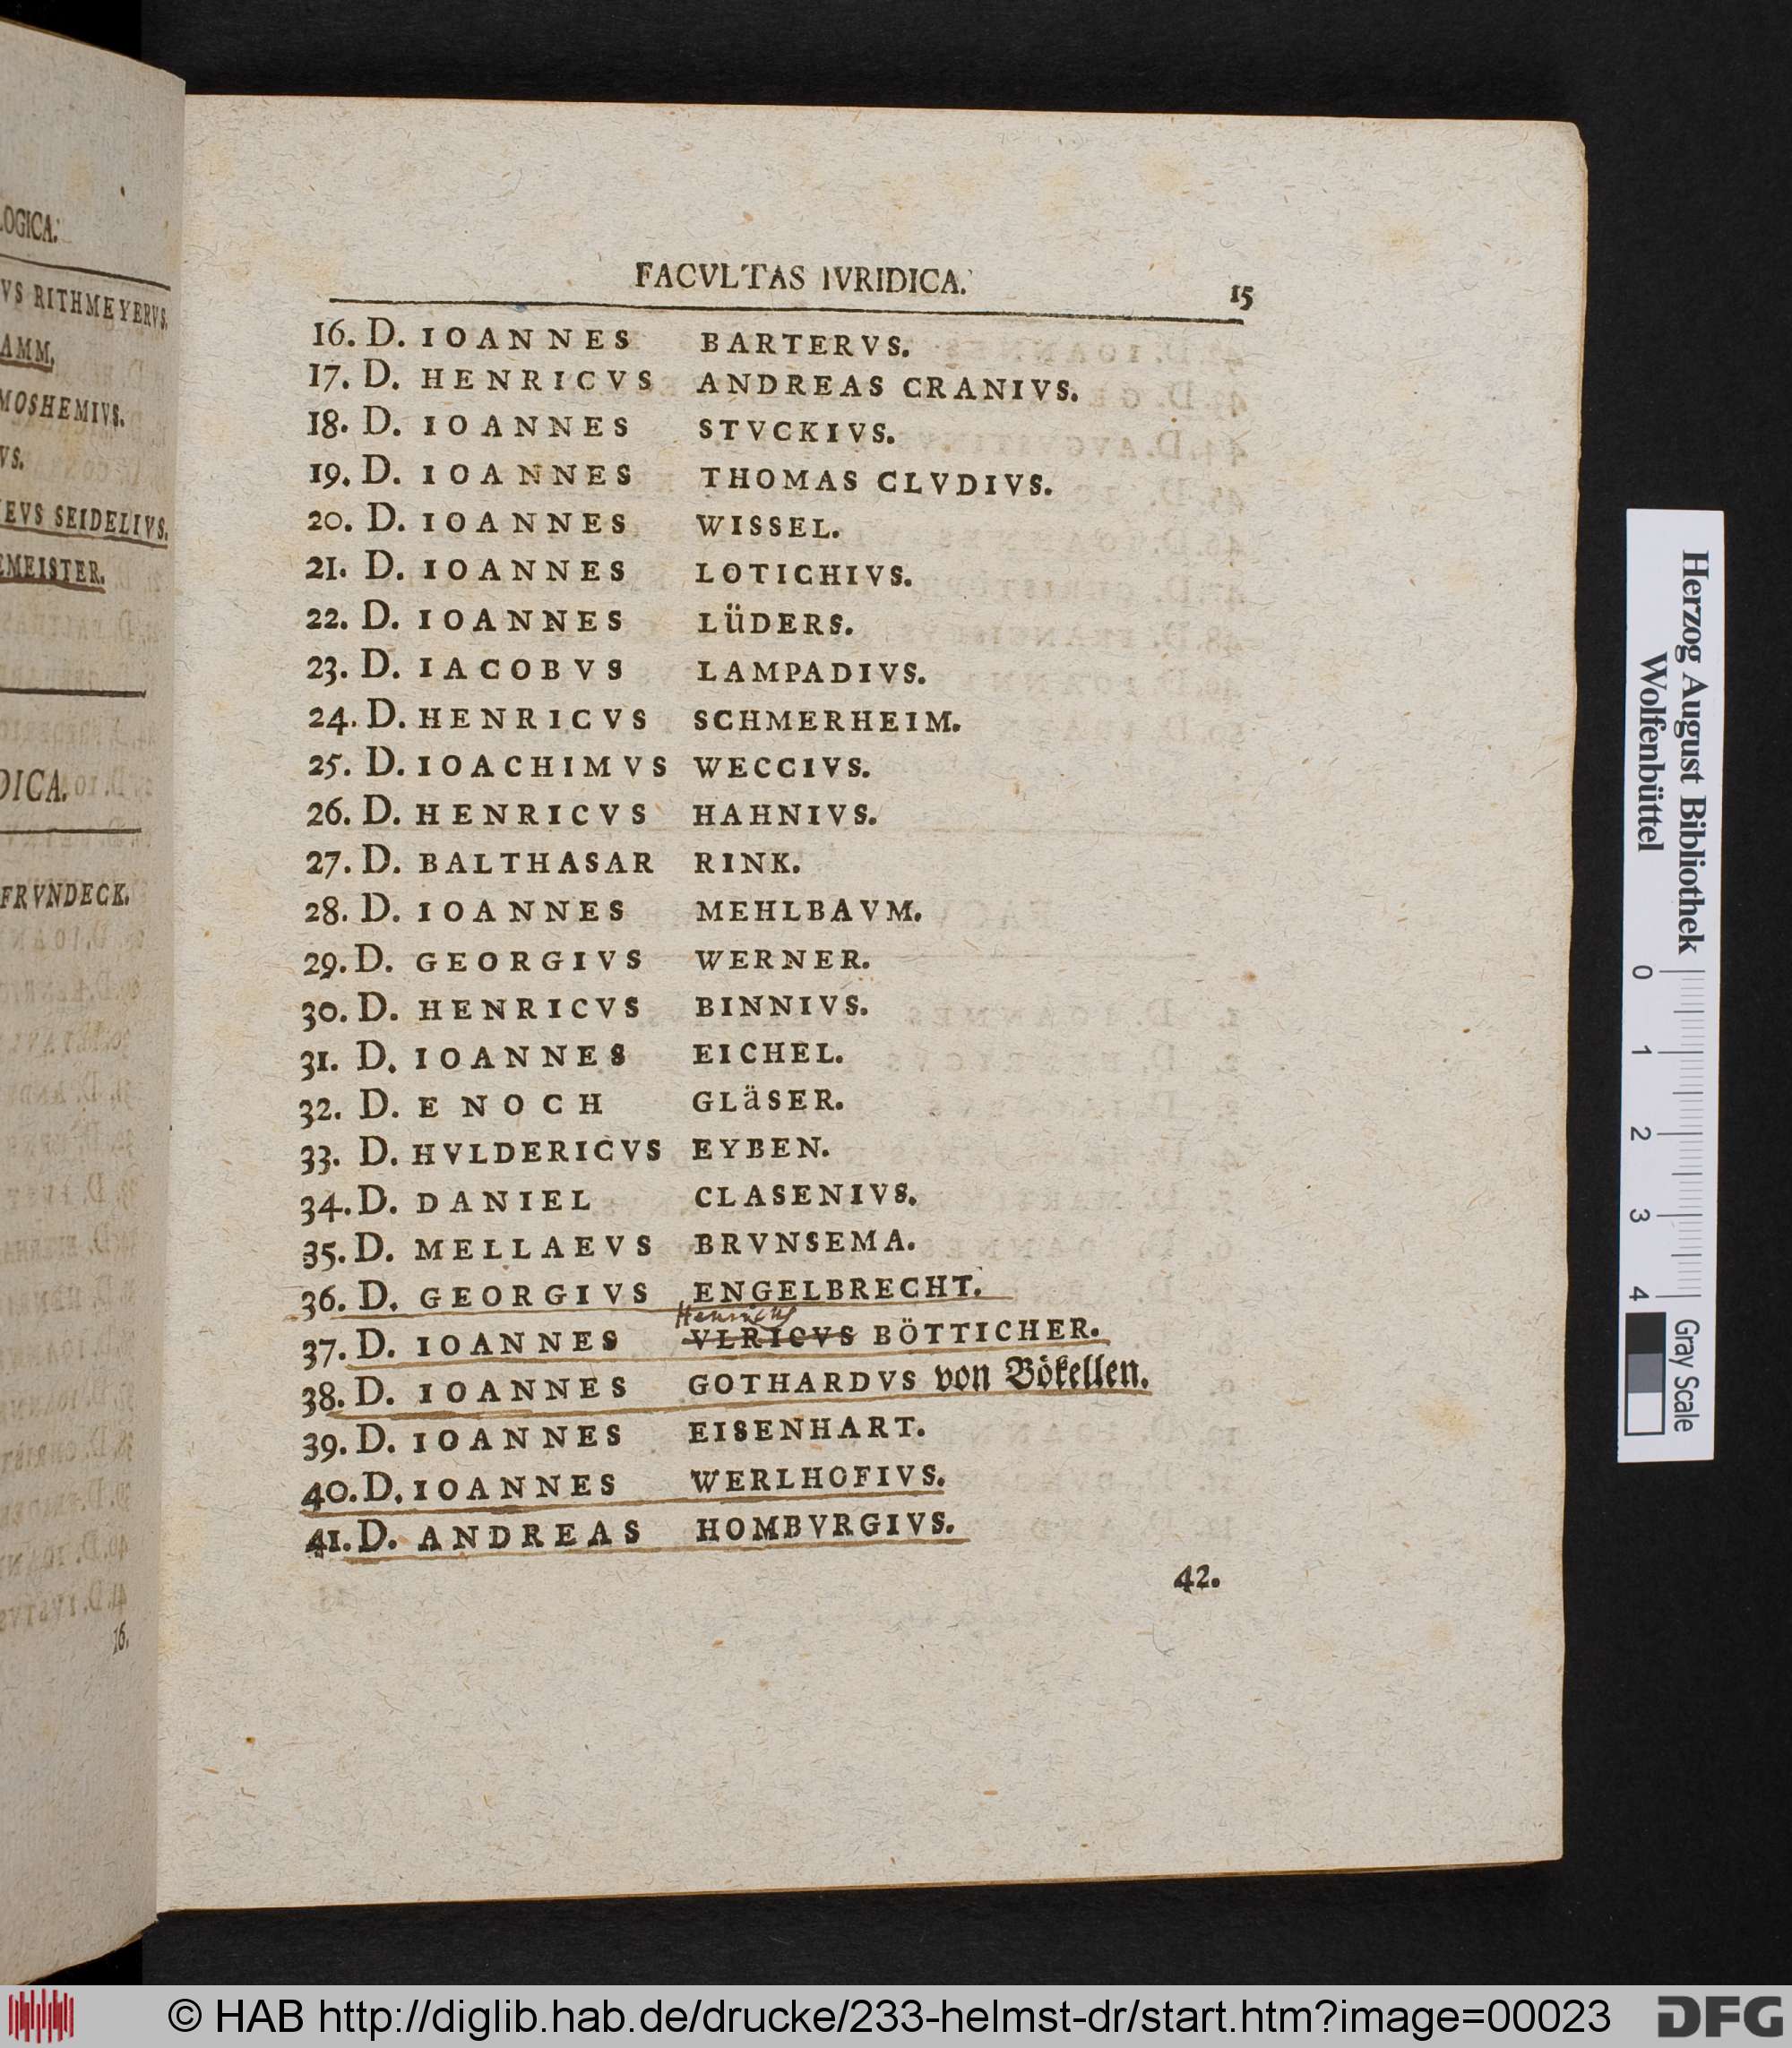 LOGICA.
VS RITHMEYERVS.
AMM.
MOSHEMIVS.
VS.
EVS SEIDELIVS.
EMEISTER.
DICA.
FRVNDECK.
16.
FACVLTAS IVRIDICA. 15
16. D. IOANNES BARTERVS.
17. D. HENRICVS ANDREAS CRANIVS.
18. D. IOANNES STVCKIVS.
19. D. IOANNES THOMAS CLVDIVS.
20. D. IOANNES WISSEL.
21. D. IOANNES LOTICHIVS.
22. D. IOANNES LÜDERS.
23. D. IACOBVS LAMPADIVS.
24. D. HENRICVS SCHMERHEIM.
25. D. IOACHIMVS WECCIVS.
26. D. HENRICVS HAHNIVS.
27. D. BALTHASAR RINK.
28. D. IOANNES MEHLBAVM.
29. D. GEORGIVS WERNER.
30. D. HENRICVS BINNIVS.
31. D. IOANNES EICHEL.
32. D. ENOCH GLäSER.
33. D. HVLDERICVS EYBEN.
34. D. DANIEL CLASENIVS.
35. D. MELLAEVS BRVNSEMA.
36. D. GEORGIVS ENGELBRECHT.
Henricus
37. D. IOANNES VLRICVS BÖTTICHER.
38. D. IOANNES GOTHARDVS von Bökellen.
39. D. IOANNES EISENHART.
40. D. IOANNES WERLHOFIVS.
41. D. ANDREAS HOMBVRGIVS.
42.
Herzog August Bibliothek
Wolfenbüttel
0 1 2 3 4
Gray Scale
© HAB http://diglib.hab.de/drucke/233-helmst-dr/start.htm?image=00023
DFG